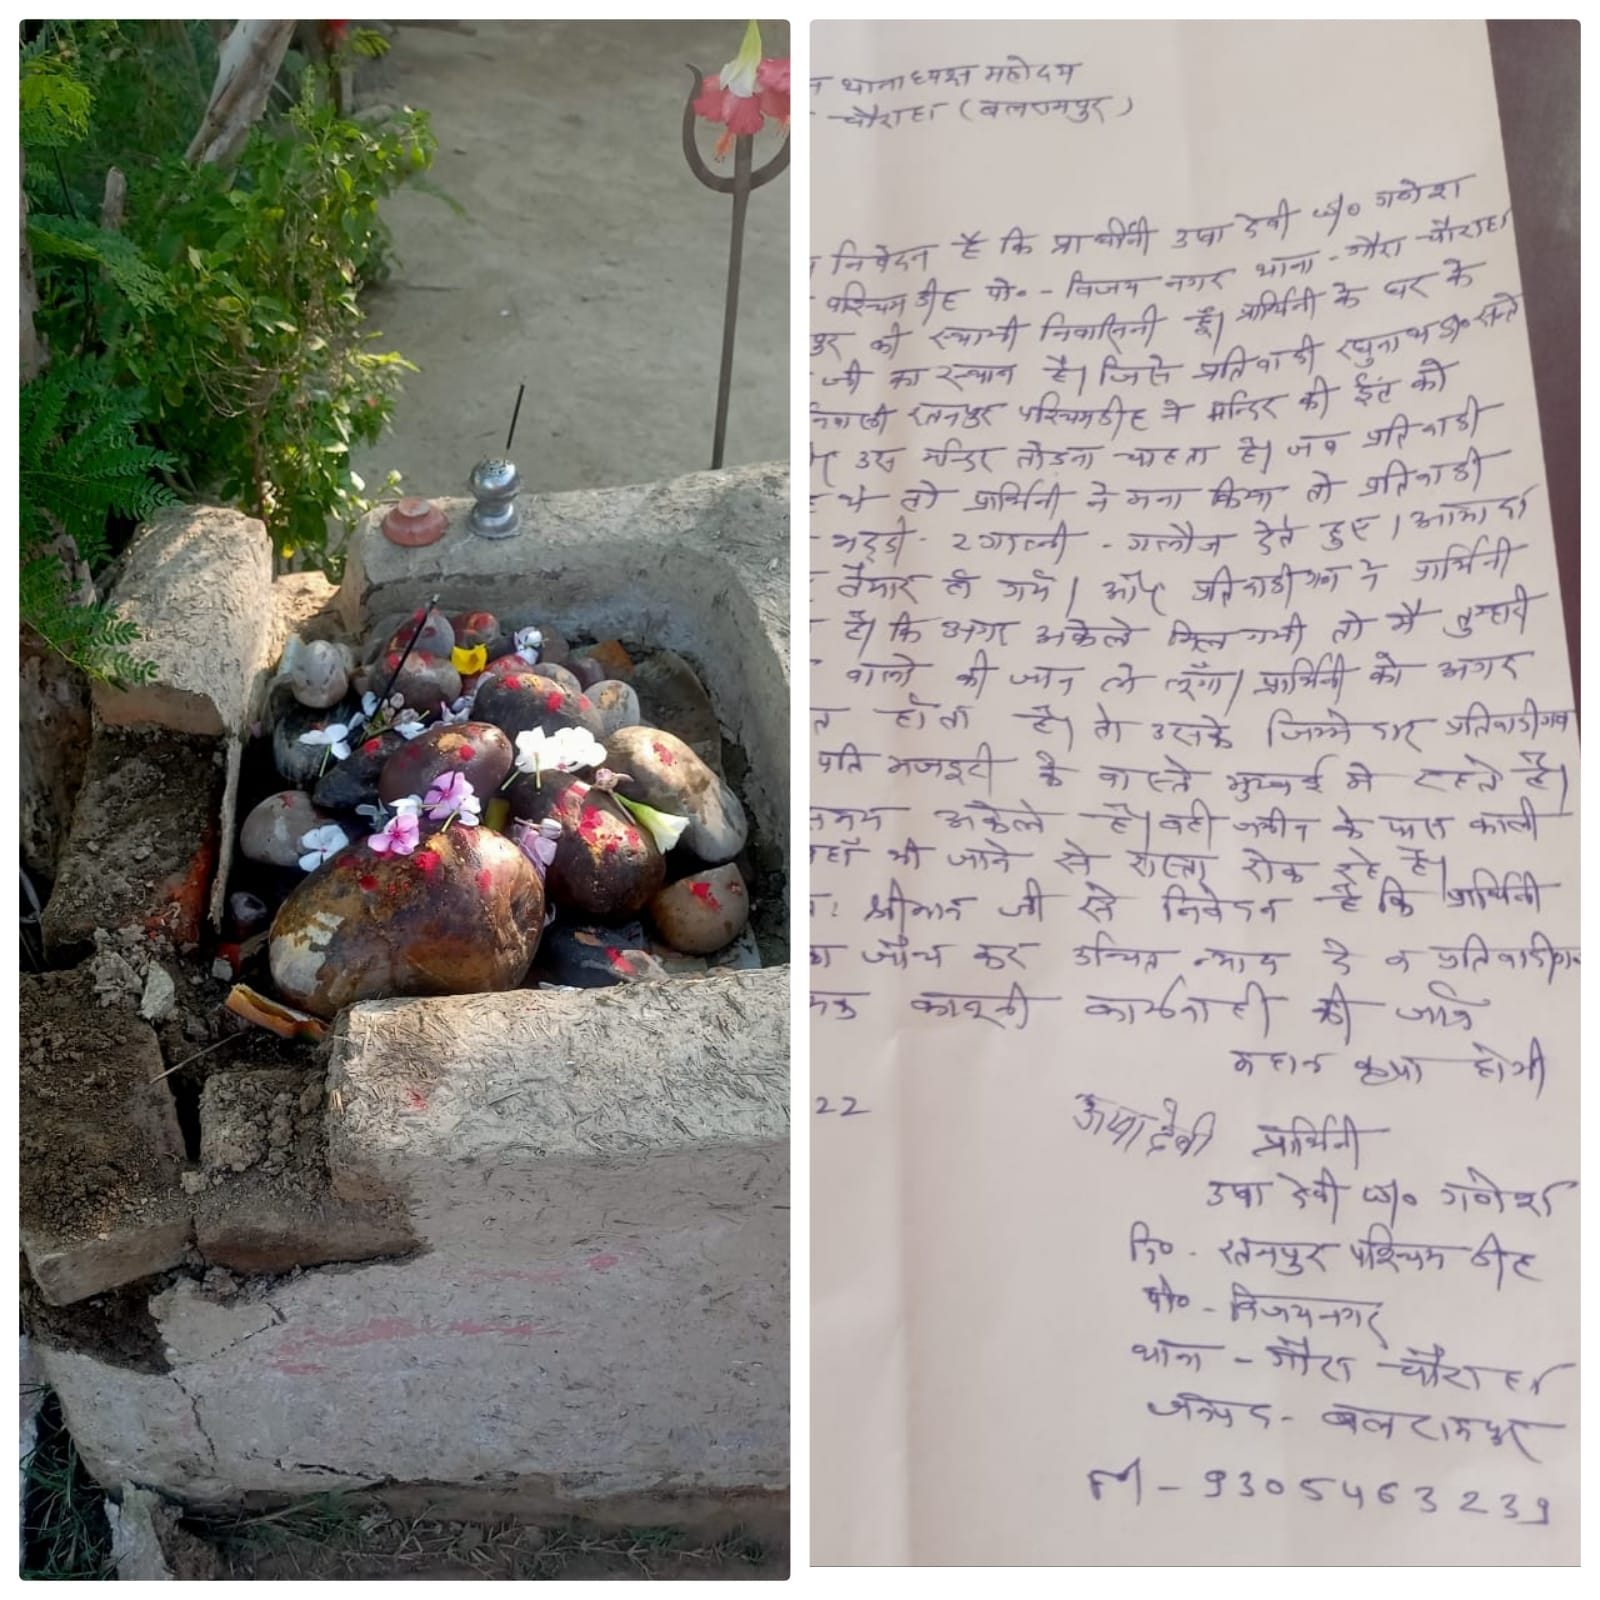 थानाध्यक्ष महोदय
चौराहा (बलरामपुर)
निवेदन है कि प्रार्थीनी उषा देवी w/o गणेश
पश्चिम डीह पो० - विजय नगर थाना - गौरा - चौराहा
की स्थायी निवासिनी हूँ। प्रार्थिनी के घर के
जी का स्थान है। जिसे प्रतिवादी रघुनाथ s/o
रतनपुर पश्चिमडीह ने मन्दिर की ईंट को
उस मन्दिर तोड़ना चाहता है। जब प्रतिवादी
थे तो प्रार्थिनी ने मना किया तो प्रतिवादी
भद्दी - गाली - गलौज देते हुए। आमादा
तैयार हो गये। और प्रतिवादीगण ने प्रार्थिनी
है। कि अगर अकेले मिल गयी तो मैं तुम्हारी
वालो की जान ले लूँगा। प्रार्थिनी को अगर
होता है। तो उसके जिम्मेदार प्रतिवादीगण
पति मजदूरी के वास्ते मुम्बई मे रहते है।
अकेले है। वही जमीन के पास काली
भी जाने से रास्ता रोक रहे है।
श्रीमान जी से निवेदन है कि प्रार्थिनी
जाँच कर उचित न्याय दे व प्रतिवादीगण
कानूनी कार्यवाही की जाये
महान कृपा होगी
22
ऊषा देवी प्रार्थिनी
उषा देवी w/o गणेश
नि० - रतनपुर पश्चिम डीह
पो० - विजयनगर
थाना - गौरा चौराहा
जनपद - बलरामपुर
M - 9305463239